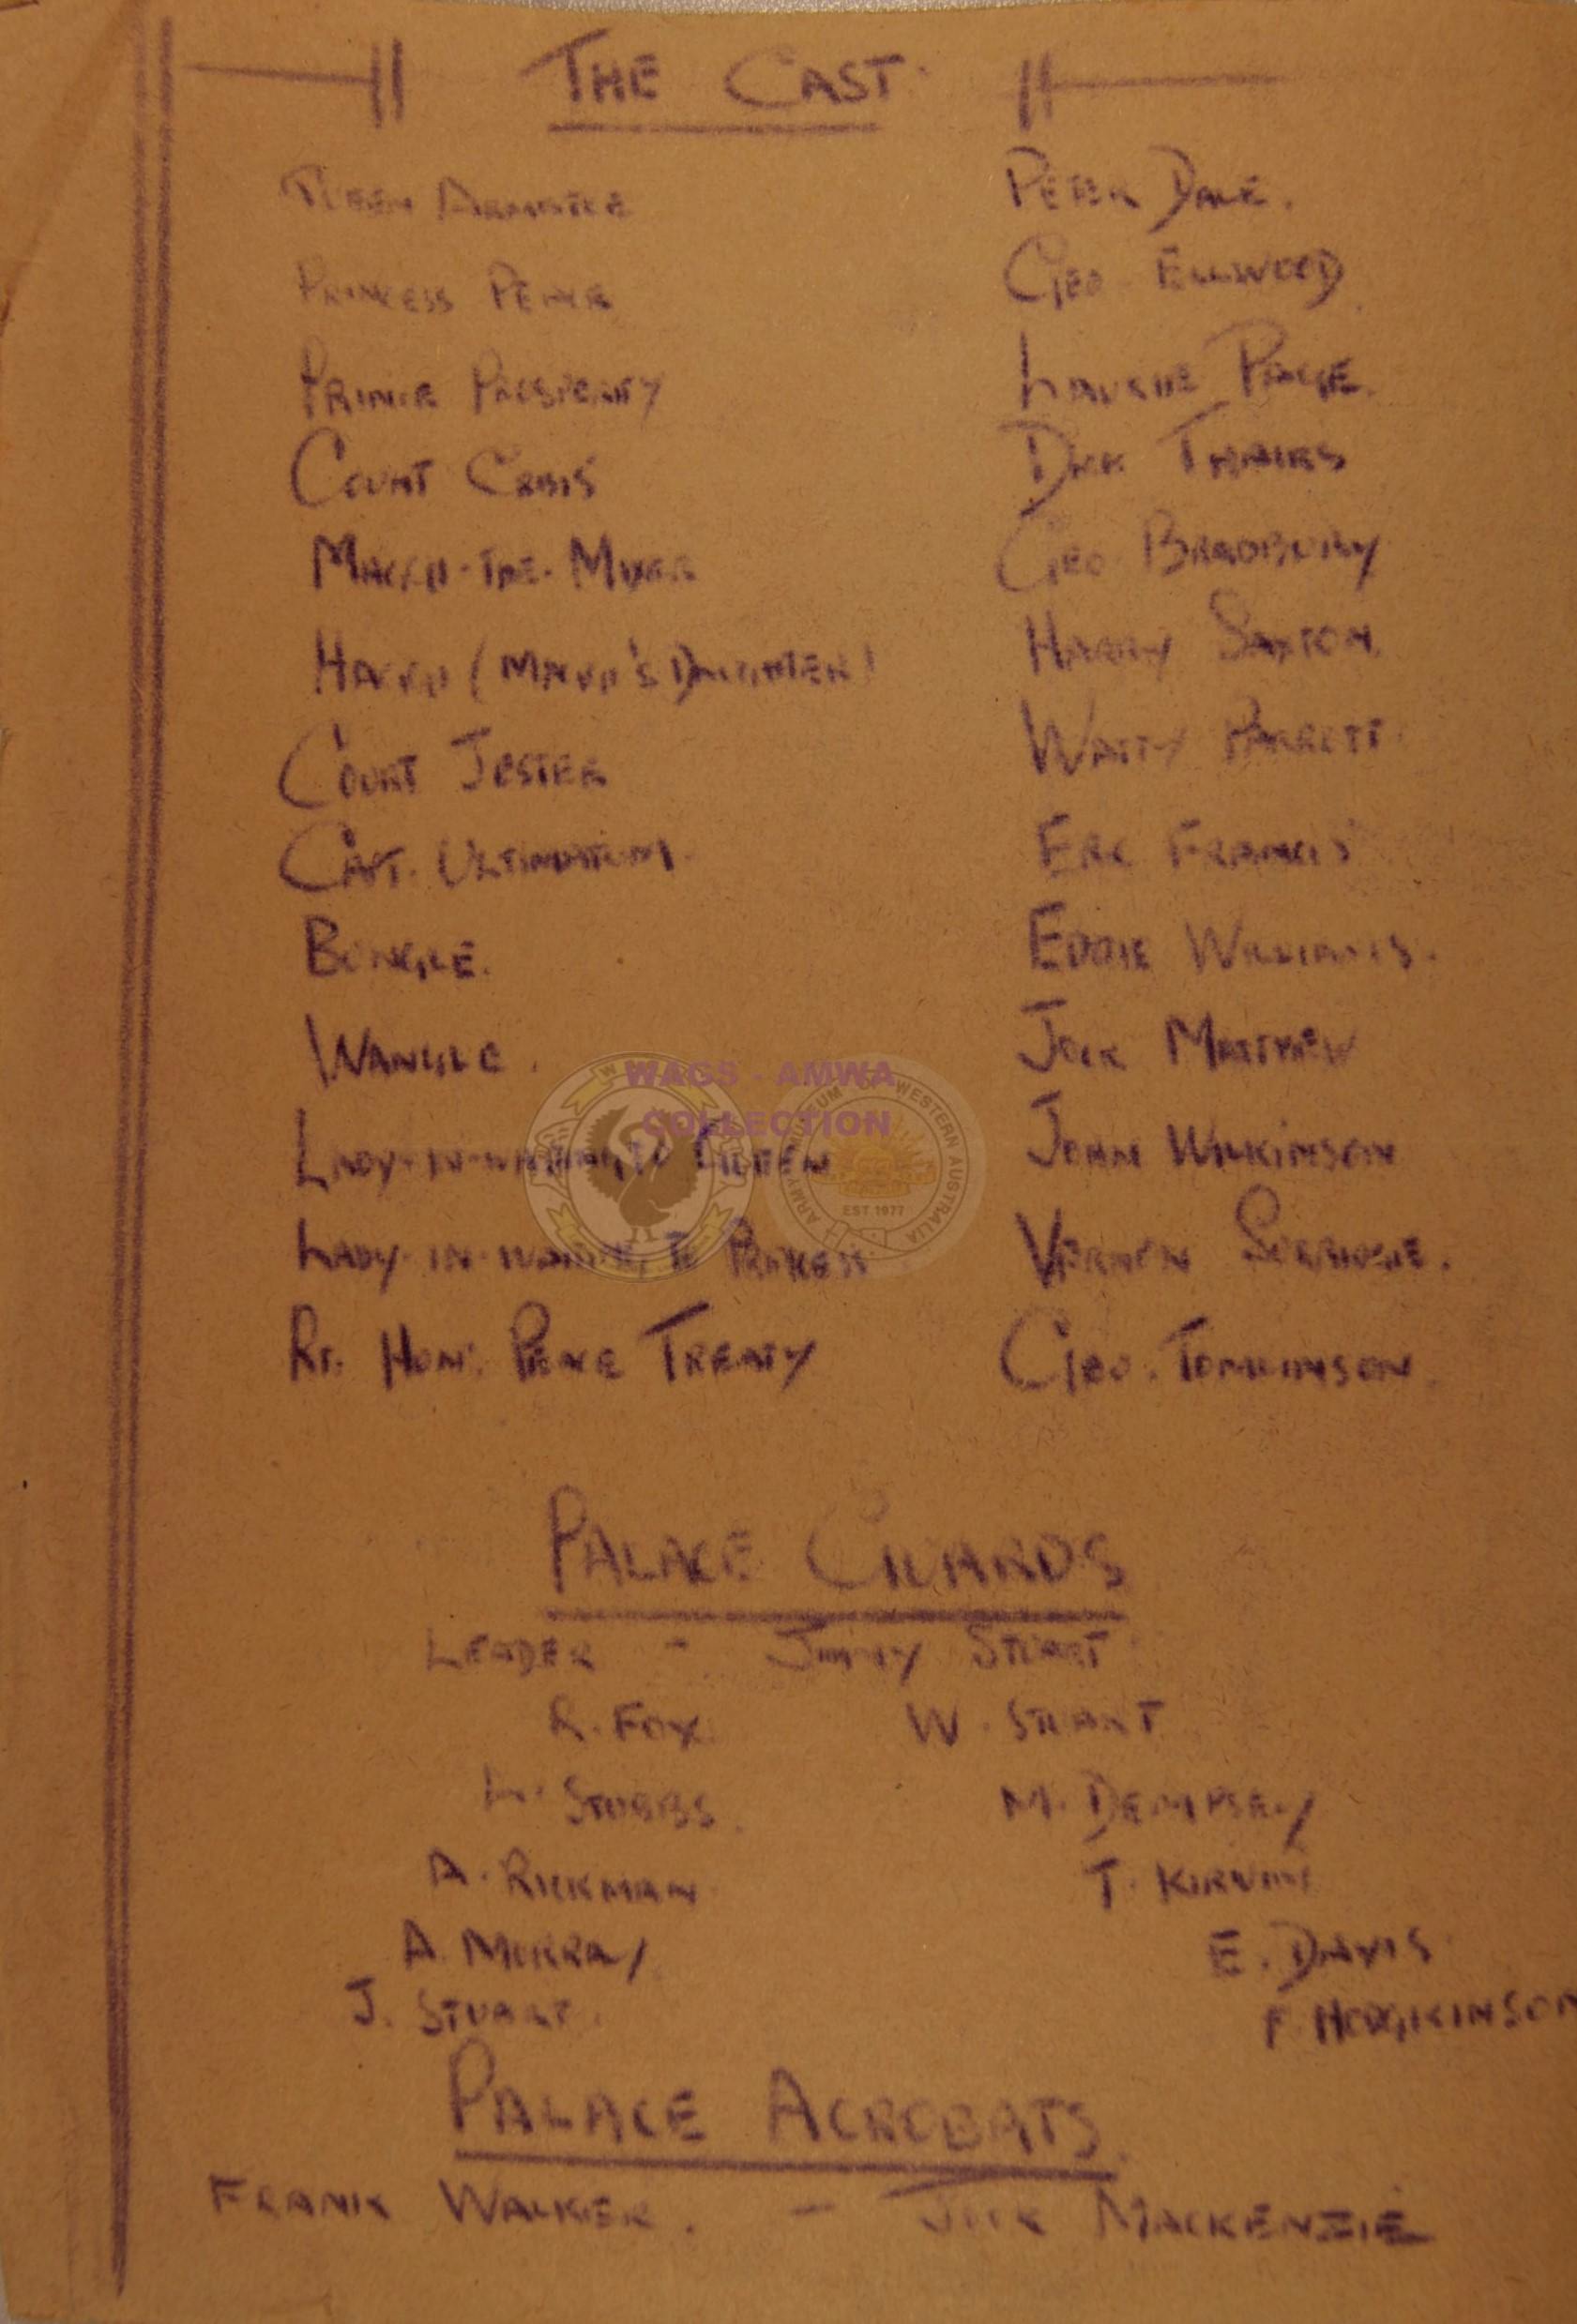 THE CAST.
QUEEN ARMISTICE PETER DALE.
PRINCESS PEACE GEO. ELLWOOD.
PRINCE PROSPERITY LAURIE PAGE.
COUNT CRISIS DICK THAIRS
THE MIXER GEO BRADBURY
DAUGHTER) HARRY SAXTON.
COURT JESTER WATTY PARROTT.
CAPT. ULTIMATUM. ERIC FRANCIS
BUNGLE. EDDIE WILLIAMS.
WANGLE. JOCK MATTHEW
LADY-IN-WAITING TO QUEEN JOHN WILKINSON
LADY-IN-WAITING TO PRINCESS VERNON
RT. HON. PEACE TREATY GEO. TOMLINSON.
PALACE GUARDS
LEADER - JIMMY STUART
R. FOX. W. STUART
L. STUBBS. M. DEMPSEY
A. RICKMAN. T.
A. MURRAY. E. DAVIS.
J. STUART. F. HODGKINSON
PALACE ACROBATS.
FRANK WALKER. - JOCK MACKENZIE
WAGS - AMWA
COLLECTION
ARMY MUSEUM OF WESTERN AUSTRALIA
EST 1977